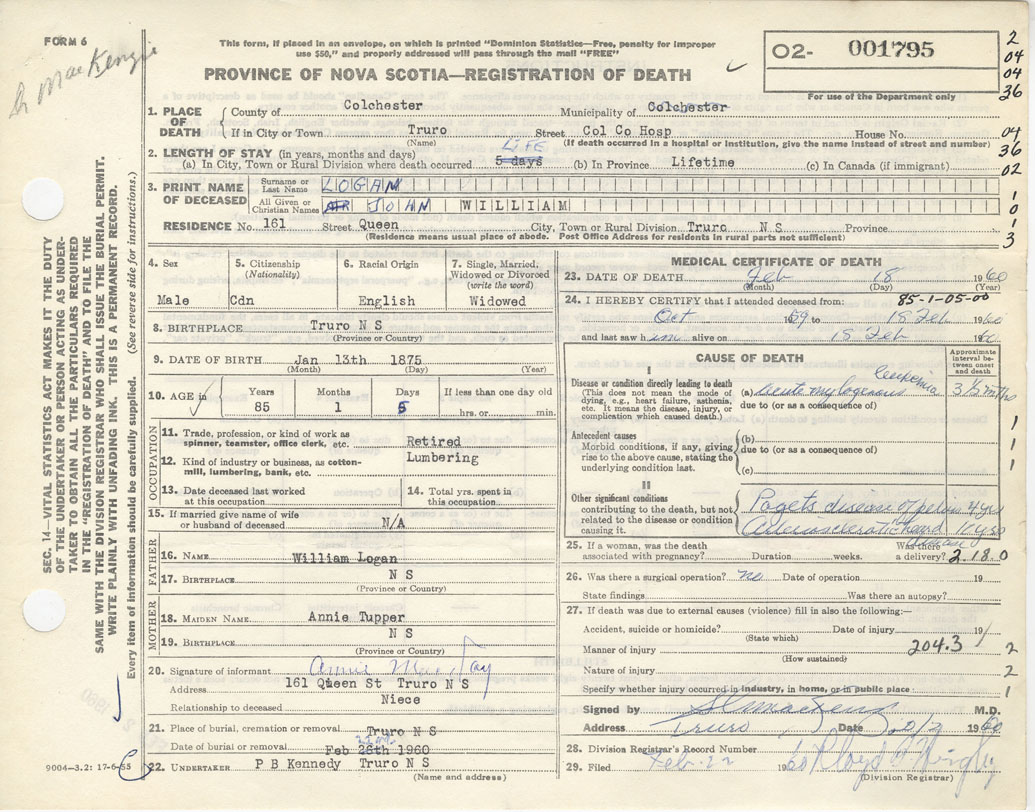 FORM 6
MacKenzie
This form, if placed in an envelope, on which is printed "Dominion Statistics—Free, penalty for improper
use $50," and properly addressed will pass through the mail "FREE"
PROVINCE OF NOVA SCOTIA—REGISTRATION OF DEATH
O2- 001795
For use of the Department only
2
04
04
36
04
36
02
1
0
1
3
SEC. 14—VITAL STATISTICS ACT MAKES IT THE DUTY
OF THE UNDERTAKER OR PERSON ACTING AS UNDER-
TAKER TO OBTAIN ALL THE PARTICULARS REQUIRED
IN THE "REGISTRATION OF DEATH" AND TO FILE THE
SAME WITH THE DIVISION REGISTRAR WHO SHALL ISSUE THE BURIAL PERMIT.
WRITE PLAINLY WITH UNFADING INK. THIS IS A PERMANENT RECORD.
Every item of information should be carefully supplied. (See reverse side for instructions.)
1. PLACE OF DEATH
County of Colchester Municipality of Colchester
If in City or Town Truro Street Col Co Hosp House No.
(Name) (If death occurred in a hospital or institution, give the name instead of street and number)
2. LENGTH OF STAY (in years, months and days) LIFE
(a) In City, Town or Rural Division where death occurred 5 days (b) In Province Lifetime (c) In Canada (if immigrant)
3. PRINT NAME OF DECEASED
Surname or Last Name LOGAN
All Given or Christian Names JOHN WILLIAM
RESIDENCE No. 161 Street Queen City, Town or Rural Division Truro N S Province
(Residence means usual place of abode. Post Office Address for residents in rural parts not sufficient)
4. Sex Male
5. Citizenship (Nationality) Cdn
6. Racial Origin English
7. Single, Married, Widowed or Divorced (write the word) Widowed
8. BIRTHPLACE Truro N S
(Province or Country)
9. DATE OF BIRTH Jan 13th 1875
(Month) (Day) (Year)
10. AGE in Years 85 Months 1 Days 5 If less than one day old hrs. or min.
OCCUPATION
11. Trade, profession, or kind of work as spinner, teamster, office clerk, etc. Retired
12. Kind of industry or business, as cotton-mill, lumbering, bank, etc. Lumbering
13. Date deceased last worked at this occupation
14. Total yrs. spent in this occupation
15. If married give name of wife or husband of deceased N/A
FATHER
16. NAME William Logan
17. BIRTHPLACE N S
(Province or Country)
MOTHER
18. MAIDEN NAME Annie Tupper
19. BIRTHPLACE N S
(Province or Country)
20. Signature of informant Annie
Address 161 Queen St Truro N S
Relationship to deceased Niece
21. Place of burial, cremation or removal Truro N S
Date of burial or removal Feb 1960
22. UNDERTAKER P B Kennedy Truro N S
(Name and address)
9004—3.2: 17-6-55
MEDICAL CERTIFICATE OF DEATH
23. DATE OF DEATH Feb 18 1960
(Month) (Day) (Year)
24. I HEREBY CERTIFY that I attended deceased from: 85-1-05-00
Oct 1959 to 18 Feb 1960
and last saw him alive on 18 Feb 1960
CAUSE OF DEATH
Approximate interval between onset and death
I
Disease or condition directly leading to death
(This does not mean the mode of dying, e.g., heart failure, asthenia, etc. It means the disease, injury, or complication which caused death.)
(a) acute mylogenous leukemia 3½ mths
due to (or as a consequence of)
Antecedent causes
Morbid conditions, if any, giving rise to the above cause, stating the underlying condition last.
(b)
due to (or as a consequence of)
(c)
1
1
1
II
Other significant conditions
contributing to the death, but not related to the disease or condition causing it.
Pagets disease of pelvis 4 yrs
Arteriosclerotic heart disease 10 yrs
25. If a woman, was the death associated with pregnancy? Duration weeks. Was there a delivery? 2.18.0
26. Was there a surgical operation? no Date of operation 19
State findings Was there an autopsy?
27. If death was due to external causes (violence) fill in also the following:—
Accident, suicide or homicide? Date of injury 19
(State which)
Manner of injury 204.3 2
(How sustained)
Nature of injury 2
Specify whether injury occurred in industry, in home, or in public place 1
Signed by M.D.
Address Truro Date 1960
28. Division Registrar's Record Number
29. Filed Feb. 22 1960
(Division Registrar)